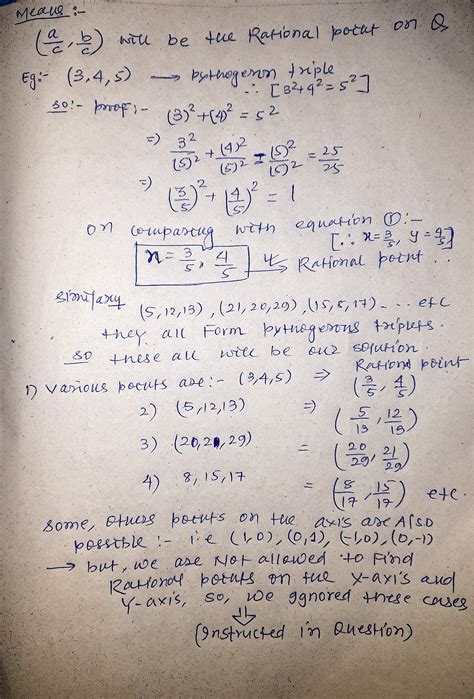 Means :-
(a/c, b/c) will be the Rational point on Q
Eg:- (3,4,5) → pythogeron triple
∴ [3²+4² = 5²]
so:- proof:- (3)²+(4)² = 5²
⇒ 3²/(5)² + (4)²/(5)² = (5)²/(5)² = 25/25
⇒ (3/5)² + (4/5)² = 1
on comparing with equation ①:-
[∴ x=3/5, y=4/5]
x = 3/5, 4/5 ← Rational point ..
similary (5,12,13), (21,20,29), (15,8,17) - .. etc
they all Form pythogerons triplets.
so these all will be our solution.
Rational point
1) Various points are:- (3,4,5) ⇒ (3/5, 4/5)
2) (5,12,13) ⇒ (5/13, 12/13)
3) (20,21,29) = (20/29, 21/29)
4) 8,15,17 = (8/17, 15/17) etc.
Some, others points on the axis are Also
possible :- i.e (1,0), (0,1), (-1,0), (0,-1)
→ but, we are Not allowed to Find
Rational points on the X-axis and
Y-axis, so, we ggnored these cases
⇓
(Instructed in Question)